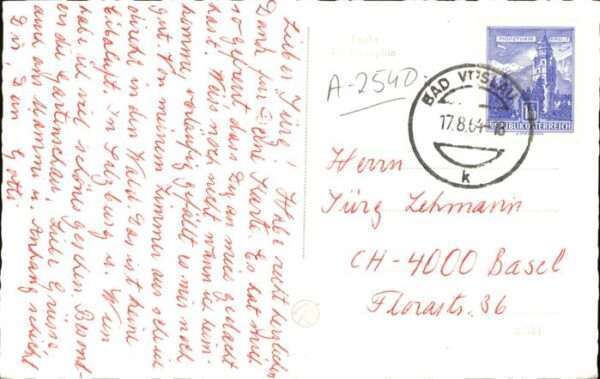 Lieber Jürg! Habe recht herzlichen
Dank für Deine Karte. Es hat mich
so gefreut, dass Du an mich gedacht
hast. Weiss noch nicht wann ich heim-
komme, vorläufig gefällt es mir noch
gut. Von meinem Zimmer aus sehe ich
direkt in den Wald. Das ist keine
In Salzburg u. Wien
hab ich viel schönes gesehen. Besond-
ers die Liebe Grüsse
auch ans Mummi u. Anhang schickt
Dir, Dein Gotti
A-2540
MÜNZTURM HALL i.T.
REPUBLIK ÖSTERREICH
BAD VÖSLAU
17.8.64-18
k
Herrn
Jürg Lehmann
CH-4000 Basel
Florastr. 36